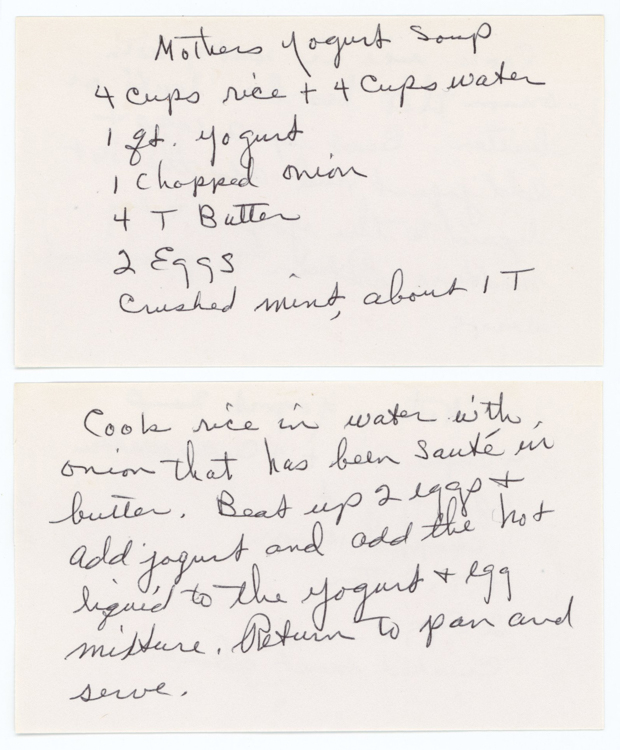 Mothers Yogurt Soup
4 cups rice + 4 Cups water
1 qt. yogurt
1 Chopped onion
4 T Butter
2 Eggs
Crushed mint, about 1 T
Cook rice in water with
onion that has been sauté in
butter. Beat up 2 eggs +
add yogurt and add the hot
liquid to the yogurt + egg
mixture. Return to pan and
serve.